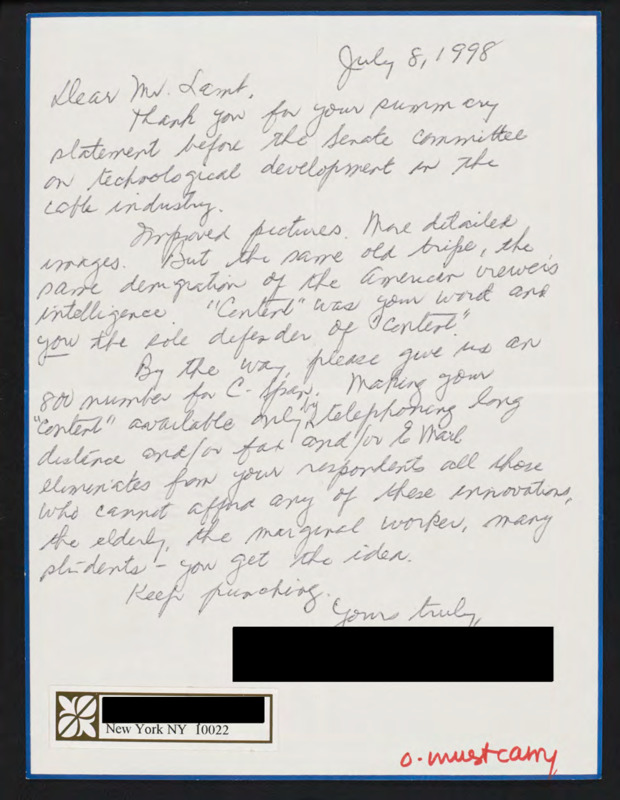 July 8, 1998
Dear Mr. Lamb,
Thank you for your summary
statement before the Senate committee
on technological development in the
cable industry.
Improved pictures. More detailed
images. But the same old tripe, the
same denigration of the American viewers
intelligence. "Content" was your word and
you the sole defender of "Content".
By the way, please give us an
800 number for C-Span. Making your
"Content" available only by telephoning long
distance and/or fax and/or E Mail
eliminates from your respondents all those
who cannot afford any of these innovations,
the elderly, the marginal worker, many
students - you get the idea.
Keep punching.
Yours truly,
New York NY 10022
o-mustcarry